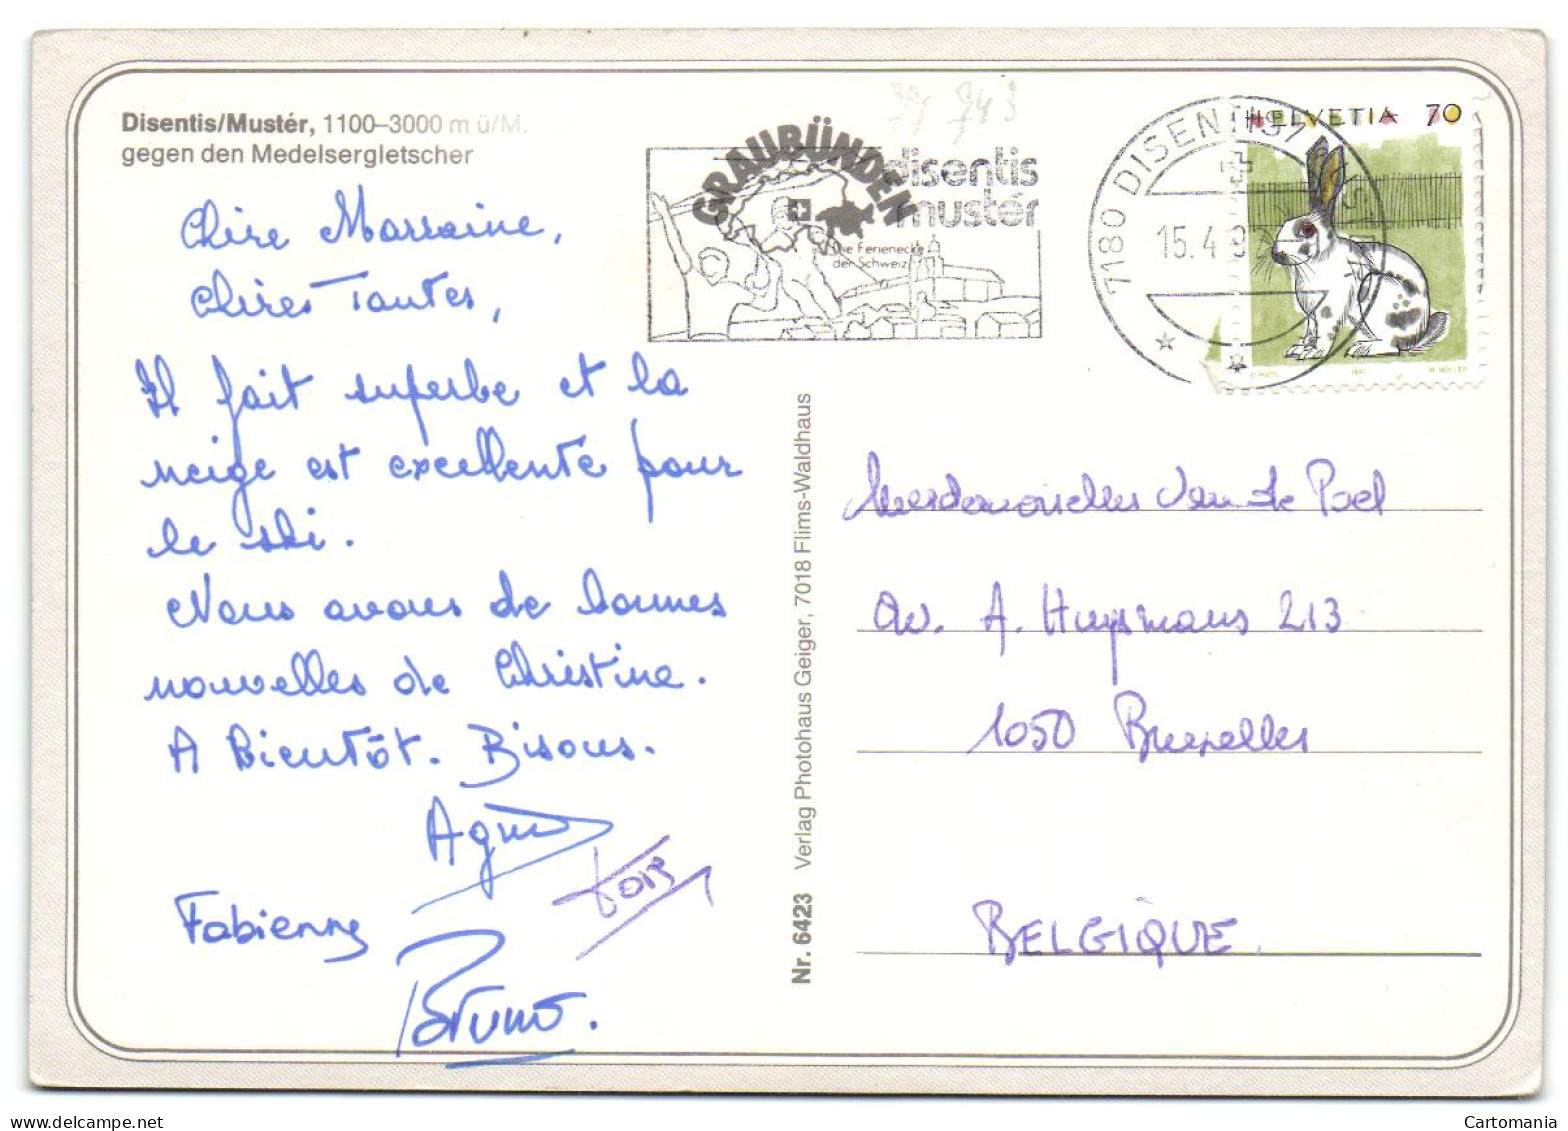 Disentis/Mustér, 1100–3000 m ü/M.
gegen den Medelsergletscher
Chère Marraine,
Chères Tantes,
Il fait superbe et la
neige est excellente pour
le ski.
Nous avons de bonnes
nouvelles de Christine.
A Bientôt. Bisous.
Agnès
Fabienne
Bruno.
Nr. 6423 Verlag Photohaus Geiger, 7018 Flims-Waldhaus
GRAUBÜNDEN
Die Ferienecke
der Schweiz
disentis
mustér
7180 DISENTIS/
15.4.9
HELVETIA 70
1991
Mesdemoiselles Van de Poel
Av. A. Huysmans 213
1050 Bruxelles
BELGIQUE
Cartomania